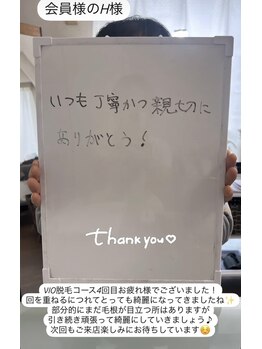 会員様のH様
いつも丁寧かつ親切に
ありがとう!
thank you♡
VIO脱毛コース4回目お疲れ様でございました!
回を重ねるにつれてとっても綺麗になってきましたね✨
部分的にまだ毛根が目立つ所はありますが
引き続き頑張って綺麗にしていきましょう♪
次回もご来店楽しみにお待ちしています☺️